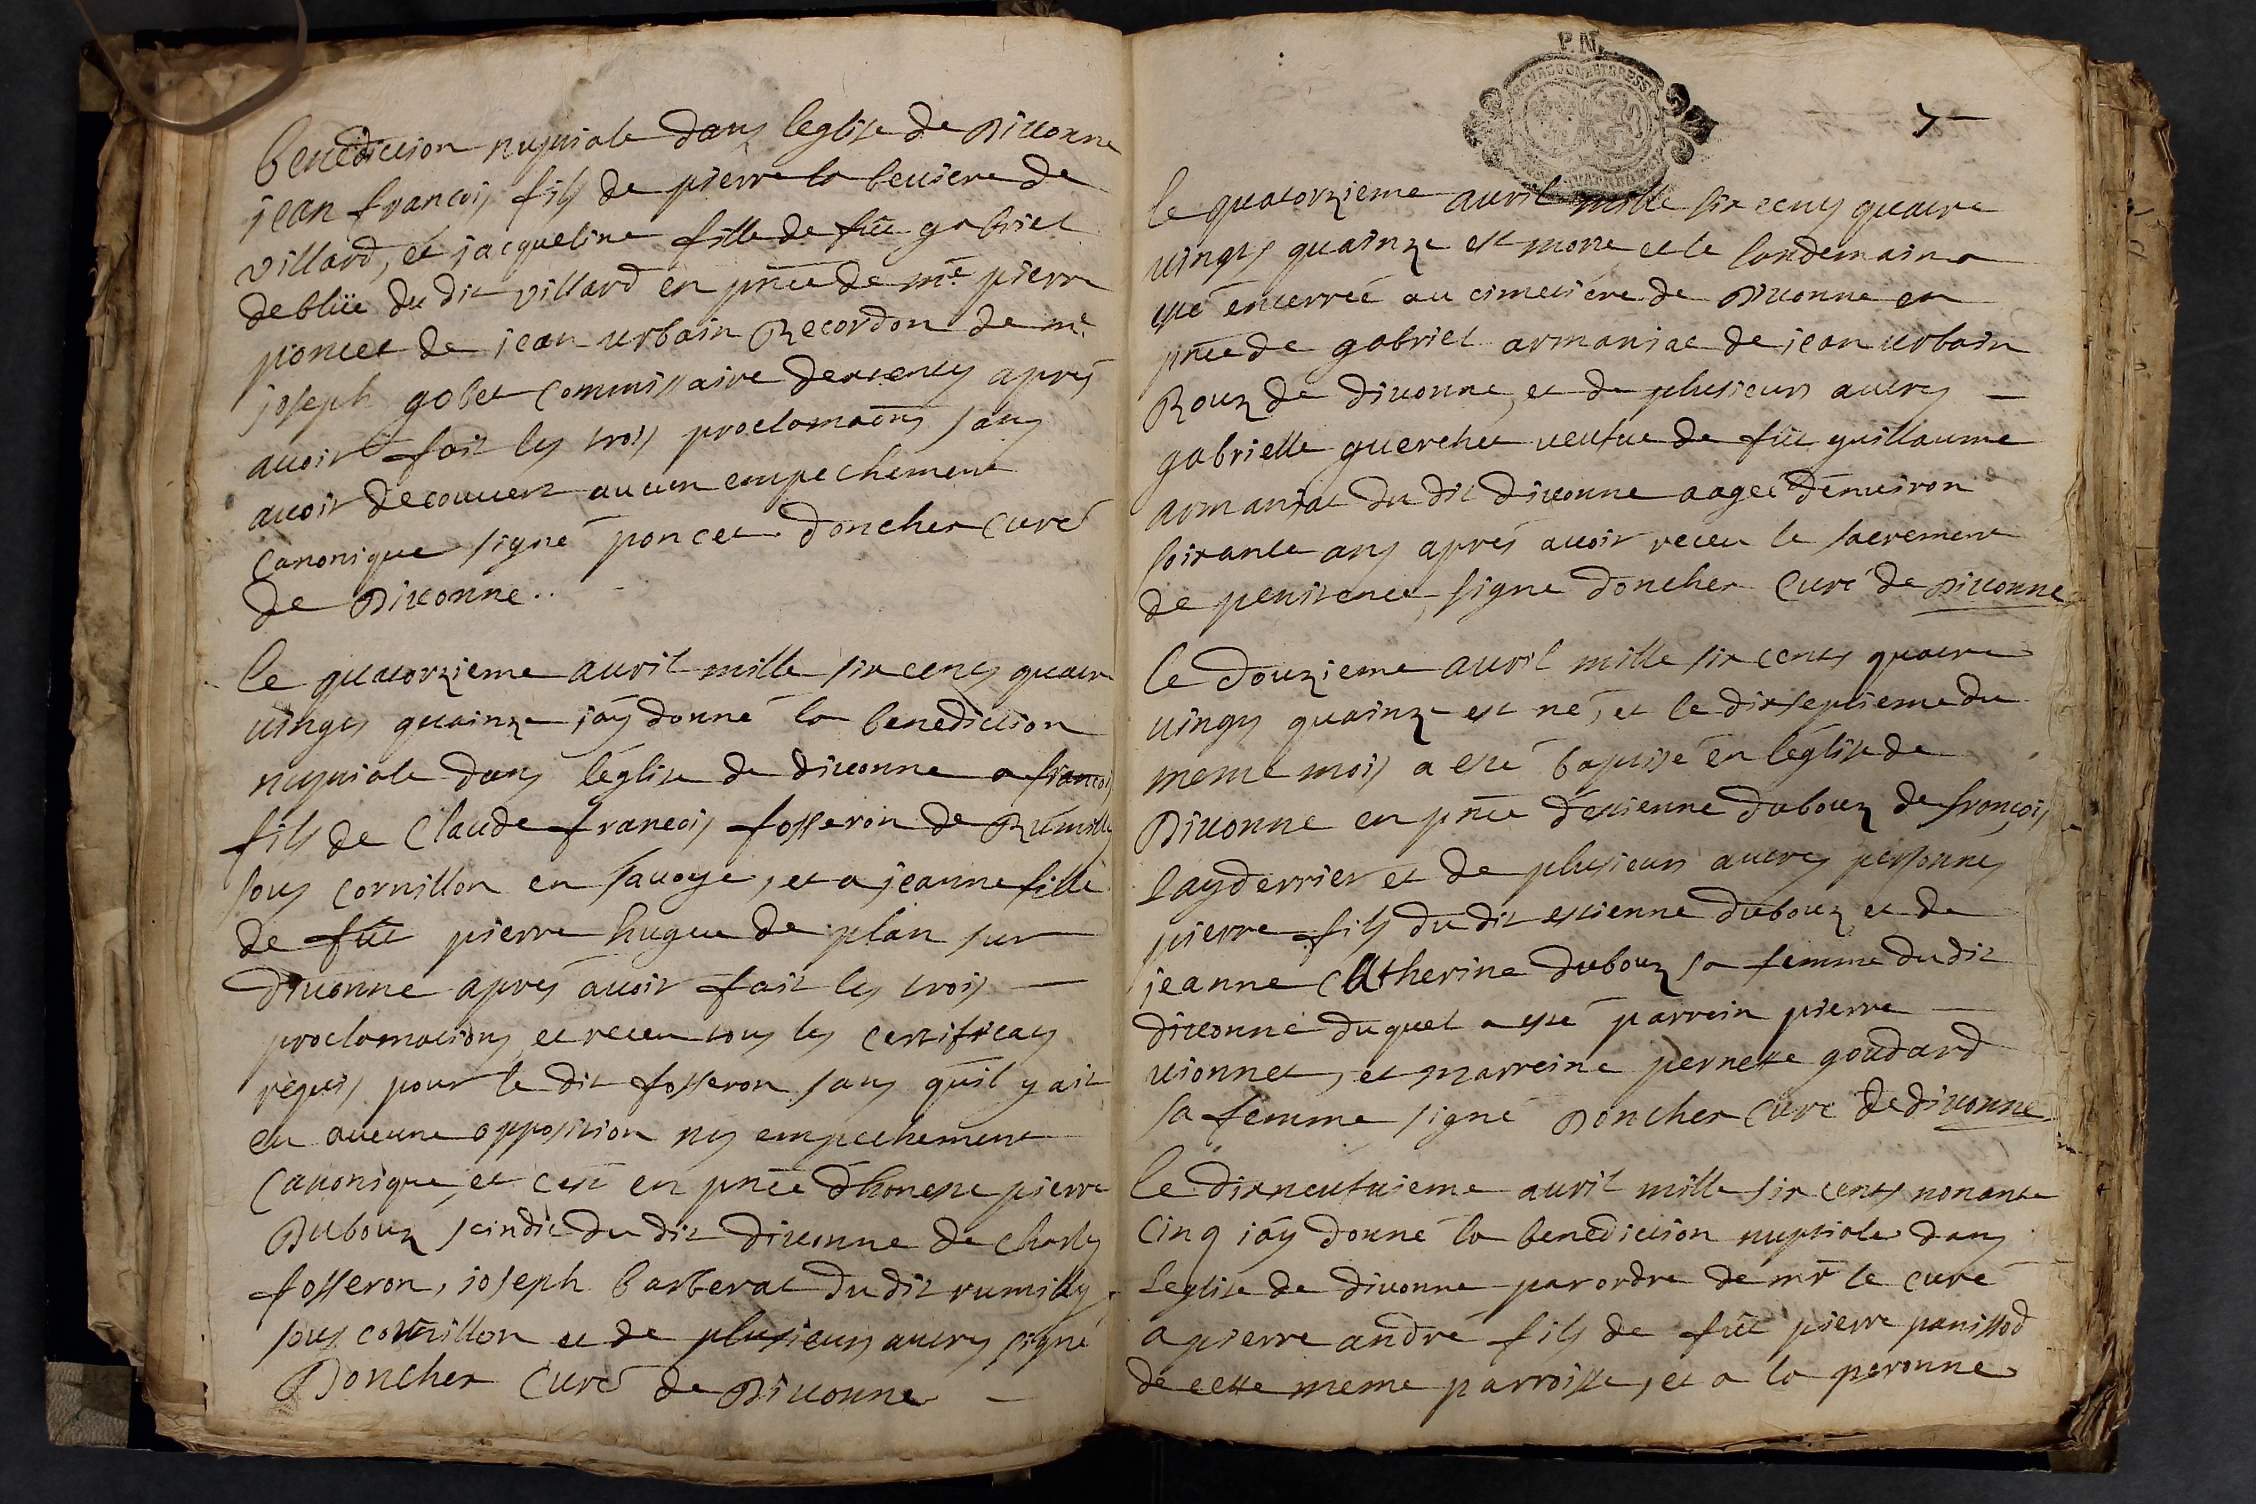 benediction nuptiale dans leglise de Divonne
jean francois fils de pierre la beuiere de
villard, et jacqueline fille de fût gabriel
deblüe du dit villard en pñce de me. pierre
poncet de jean urbain Recordon de me.
joseph gobet commissaire dextentes aprés
avoir fait les trois proclamaõns sans
avoir decouuert aucun empechement
canonique signé poncet. Doncher curé
de Divonne..
le quatorzieme auril mille six cents quatre
uingts quainze iây donné la benediction
nuptiale dans léglise de diuonne a francois
fils de Claude francois fosseron de Rumilly
sous cornillon en sauoye, et a jeanne fille
de fût pierre hugue de plan sur
diuonne aprés auoir fait les trois —
proclamations et receu tous les certificats
requis pour le dit fosseron sans qu'il y ait
eu aucune opposition ny empechement
canonique, et cest en pñce d'honeste pierre
Dubouz scindic du dit diuonne de charles
fosseron, ioseph barberat du dit rumilly
sous cornillon et de plusieurs autres signé
Doncher curé de Diuonne —
P. N.
7
le quatorzieme auril mille six cents quatre
uingts quainze est morte et le landemain a
esté enterrée au cimetiere de Diuonne en
pñce de gabriel armaniac de jean urbain
Rouz de diuonne, et de plusieurs autres —
gabrielle guerchet ueufue de fût guillaume
armaniac du dit diuonne aagée denuiron
soixante ans aprés auoir receu le sacrement
de penitence, signe Doncher Curé de Diuonne
le douzieme auril mille six cents quatre
uingts quainze est né, et le dixseptieme du
meme mois a esté baptisé en léglise de
Diuonne en pñce d'estienne dubouz de françois
Layderrier et de plusieurs autres personnes
pierre fils du dit estienne dubouz et de
jeanne Catherine dubouz sa femme du dit
diuonne duquel a esté parrein pierre —
uionnet, et marreine pernette goudard
sa femme signé Doncher Curé de diuonne
le dixneufuieme auril mille six cents nonante
Cinq iây donné la benediction nuptiale dans
Leglise de diuonne par ordre de mr le curé
a pierre andré fils de fût pierre panissod
de cette meme parroisse, et a la peronne